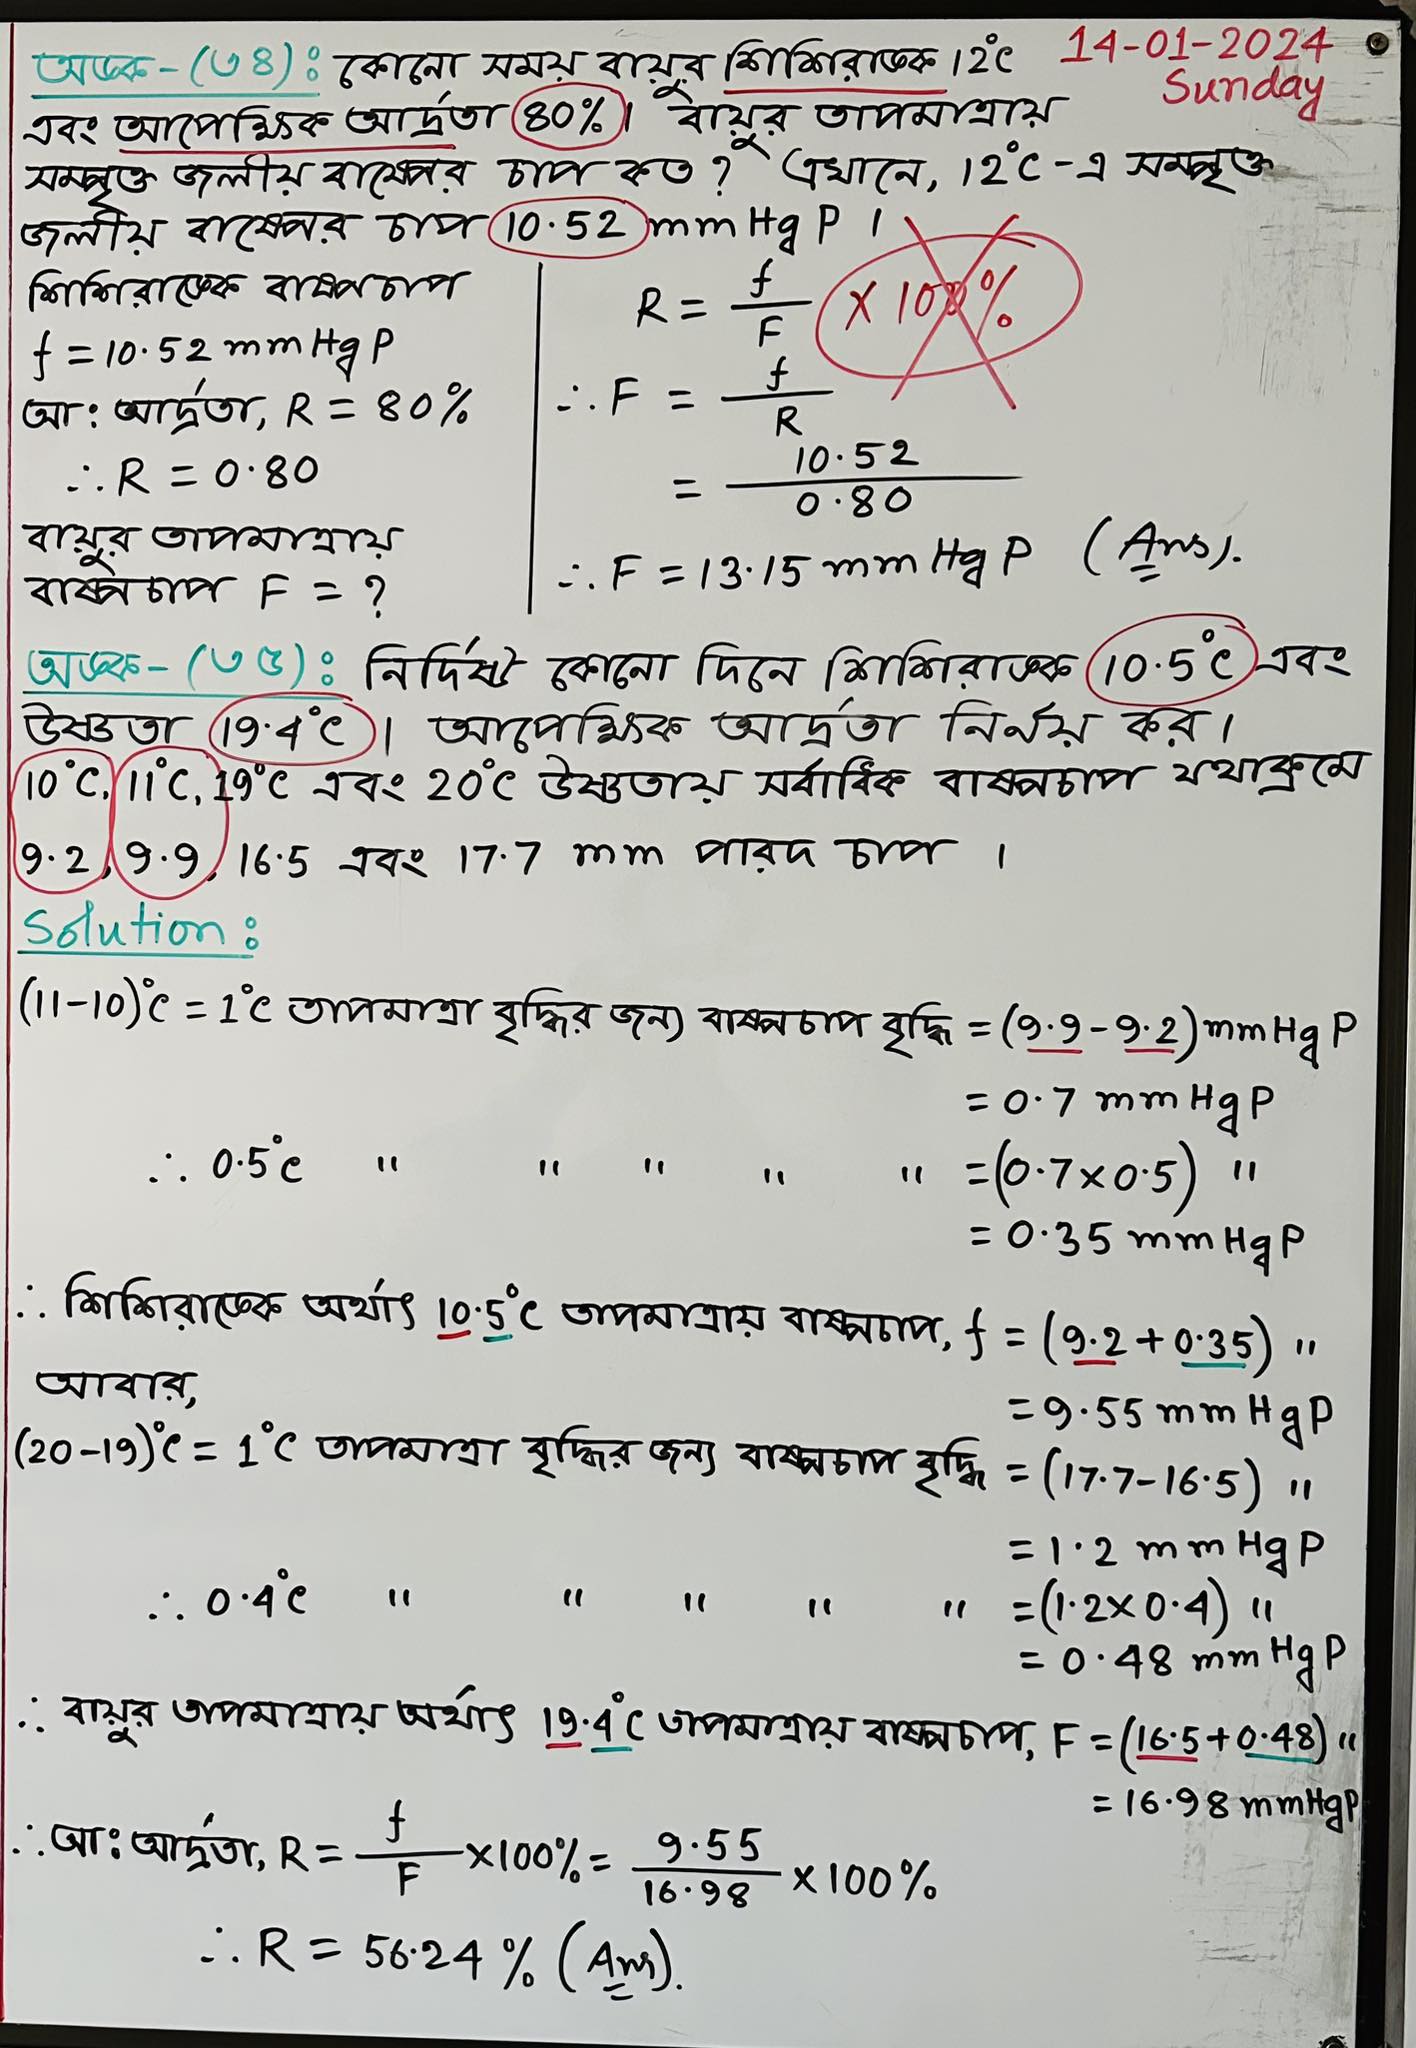 অঙ্ক-(৩৪): কোনো সময় বায়ুর শিশিরাঙ্ক 12°C
14-01-2024
Sunday
এবং আপেক্ষিক আর্দ্রতা 80%। বায়ুর তাপমাত্রায়
সম্পৃক্ত জলীয় বাষ্পের চাপ কত? এখানে, 12°C-এ সম্পৃক্ত
জলীয় বাষ্পের চাপ 10.52 mm Hg P ।
শিশিরাঙ্কে বাষ্পচাপ
f = 10.52 mm Hg P
আ: আর্দ্রতা, R = 80%
∴ R = 0.80
বায়ুর তাপমাত্রায়
বাষ্পচাপ F = ?
R = f/F × 100%
∴ F = f/R
= 10.52/0.80
∴ F = 13.15 mm Hg P (Ans).
অঙ্ক-(৩৫): নির্দিষ্ট কোনো দিনে শিশিরাঙ্ক 10.5°C এবং
উষ্ণতা 19.4°C। আপেক্ষিক আর্দ্রতা নির্ণয় কর।
10°C, 11°C, 19°C এবং 20°C উষ্ণতায় সর্বাধিক বাষ্পচাপ যথাক্রমে
9.2, 9.9, 16.5 এবং 17.7 mm পারদ চাপ ।
Solution:
(11-10)°C = 1°C তাপমাত্রা বৃদ্ধির জন্য বাষ্পচাপ বৃদ্ধি = (9.9-9.2) mm Hg P
= 0.7 mm Hg P
∴ 0.5°C " " " " " = (0.7×0.5) "
= 0.35 mm Hg P
∴ শিশিরাঙ্কে অর্থাৎ 10.5°C তাপমাত্রায় বাষ্পচাপ, f = (9.2+0.35) "
= 9.55 mm Hg P
আবার,
(20-19)°C = 1°C তাপমাত্রা বৃদ্ধির জন্য বাষ্পচাপ বৃদ্ধি = (17.7-16.5) "
= 1.2 mm Hg P
∴ 0.4°C " " " " " = (1.2×0.4) "
= 0.48 mm Hg P
∴ বায়ুর তাপমাত্রায় অর্থাৎ 19.4°C তাপমাত্রায় বাষ্পচাপ, F = (16.5+0.48) "
= 16.98 mm Hg P
∴ আ: আর্দ্রতা, R = f/F ×100% = 9.55/16.98 × 100%
∴ R = 56.24 % (Ans).